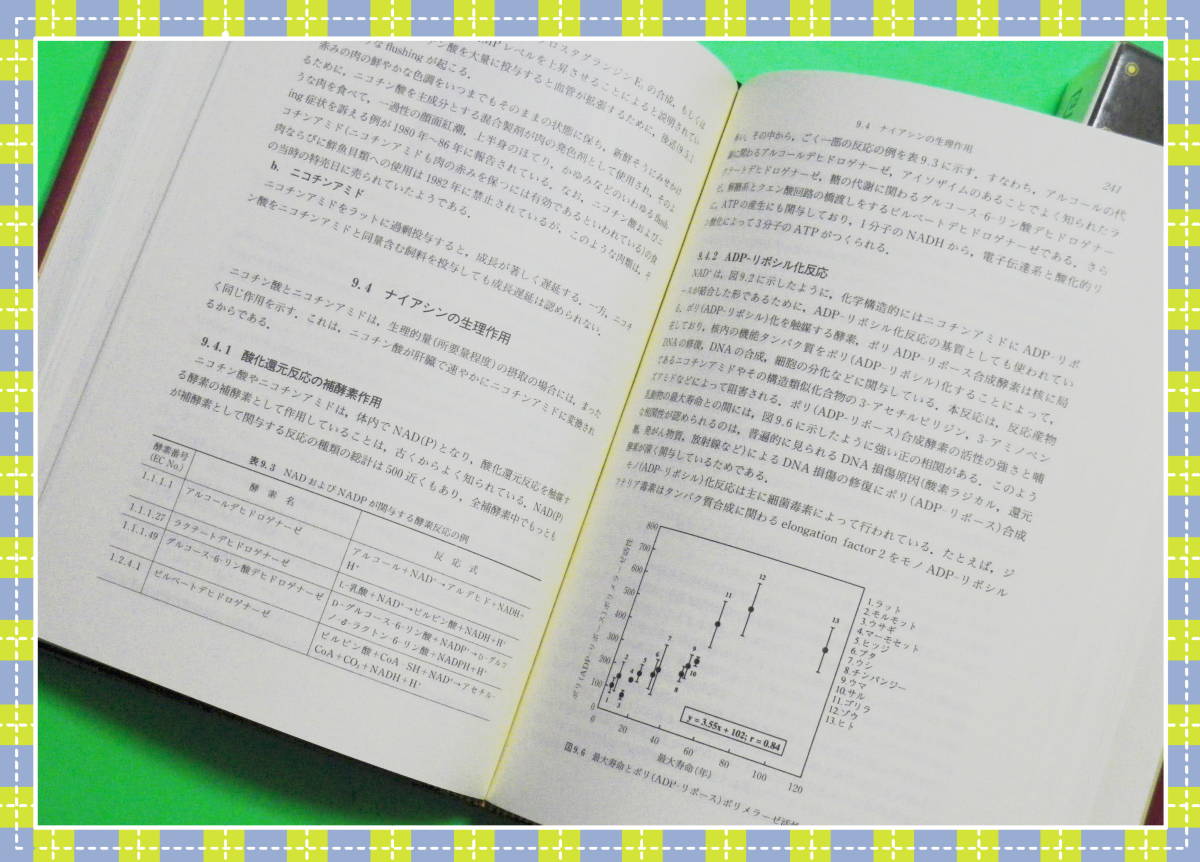 MPレベルを上昇させることによると説明されてい
な flushing が起こる.
赤みの肉の鮮やかな色調をいつまでもそのままの状態に保ち,新鮮そうにみせかけ
るために,ニコチン酸を主成分とする混合製剤が肉の発色剤として使用され,そのよ
うな肉を食べて,一過性の顔面紅潮,上半身のほてり,かゆみなどのいわゆる flush-
ing 症状を訴える例が1980年～86年に報告されている.なお,ニコチン酸およびニ
コチンアミド(ニコチンアミドも肉の赤みを保つには有効であるといわれている)の食
肉ならびに鮮魚貝類への使用は1982年に禁止されているが,このような肉類は,そ
の当時の特売日に売られていたようである.
b. ニコチンアミド
ニコチンアミドをラットに過剰投与すると,成長が著しく遅延する.一方,ニコチ
ン酸をニコチンアミドと同量含む飼料を投与しても成長遅延は認められない.
9.4 ナイアシンの生理作用
ニコチン酸とニコチンアミドは,生理的量(所要量程度)の摂取の場合には,まった
く同じ作用を示す.これは,ニコチン酸が肝臓で速やかにニコチンアミドに変換され
るからである.
9.4.1 酸化還元反応の補酵素作用
ニコチン酸やニコチンアミドは,体内でNAD(P)となり,酸化還元反応を触媒す
る酵素の補酵素として作用していることは,古くからよく知られている.NAD(P)
が補酵素として関与する反応の種類の総計は500近くもあり,全補酵素中でもっとも
表9.3 NADおよびNADPが関与する酵素反応の例
酵素番号 (EC No.) 酵素名 反応式
1.1.1.1 アルコールデヒドロゲナーゼ アルコール+NAD⁺→アルデヒド+NADH+
H⁺
1.1.1.27 ラクテートデヒドロゲナーゼ L-乳酸+NAD⁺→ピルビン酸+NADH+H⁺
1.1.1.49 グルコース-6-リン酸デヒドロゲナーゼ D-グルコース-6-リン酸+NADP⁺→D-グルコ
ノ-δ-ラクトン-6-リン酸+NADPH+H⁺
1.2.4.1 ピルベートデヒドロゲナーゼ ピルビン酸+CoA-SH+NAD⁺→アセチル-
CoA+CO₂+NADH+H⁺
9.4 ナイアシンの生理作用 241
その中から,ごく一部の反応の例を表9.3に示す.すなわち,アルコールの代
謝に関わるアルコールデヒドロゲナーゼ,アイソザイムのあることでよく知られたラ
クテートデヒドロゲナーゼ,糖の代謝に関わるグルコース-6-リン酸デヒドロゲナー
ゼ,解糖系とクエン酸回路の橋渡しをするピルベートデヒドロゲナーゼである.さら
に,ATPの産生にも関与しており,1分子のNADHから,電子伝達系と酸化的リ
ン酸化によって3分子のATPがつくられる.
9.4.2 ADP-リボシル化反応
NAD⁺は,図9.2に示したように,化学構造的にはニコチンアミドにADP-リボ
ースが結合した形であるために,ADP-リボシル化反応の基質としても使われてい
る.ポリ(ADP-リボシル)化を触媒する酵素,ポリADP-リボース合成酵素は核に局
在しており,核内の機能タンパク質をポリ(ADP-リボシル)化することによって,
DNAの修復,DNAの合成,細胞の分化などに関与している.本反応は,反応産物
であるニコチンアミドやその構造類似化合物の3-アセチルピリジン,3-アミノベン
ズアミドなどによって阻害される.ポリ(ADP-リボース)合成酵素の活性の強さと哺
乳動物の最大寿命との間には,図9.6に示したように強い正の相関がある.このよう
な相関性が認められるのは,普遍的に見られるDNA損傷原因(酸素ラジカル,還元
糖,発がん物質,放射線など)によるDNA損傷の修復にポリ(ADP-リボース)合成
酵素が深く関与しているためである.
モノ(ADP-リボシル)化反応は主に細菌毒素によって行われている.たとえば,ジ
フテリア毒素はタンパク質合成に関わる elongation factor 2 をモノADP-リボシル
800
700
600
500
400
300
200
100
0
0 20 40 60 80 100 120
1 2 3 4 5 6 7 8 9 10 11 12 13
y = 3.55x + 102; r = 0.84
最大寿命(年)
1.ラット
2.モルモット
3.ウサギ
4.マーモセット
5.ヒツジ
6.ブタ
7.ウシ
8.チンパンジー
9.ウマ
10.サル
11.ゴリラ
12.ゾウ
13.ヒト
図9.6 最大寿命とポリ(ADP-リボース)ポリメラーゼ活性